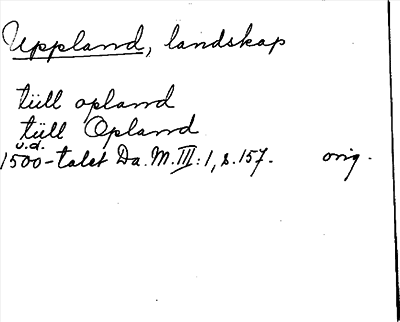 Uppland, landskap
tüll opland
tüll Opland
u.d.
1500-talet Da. M. III: 1, s. 157. orig.